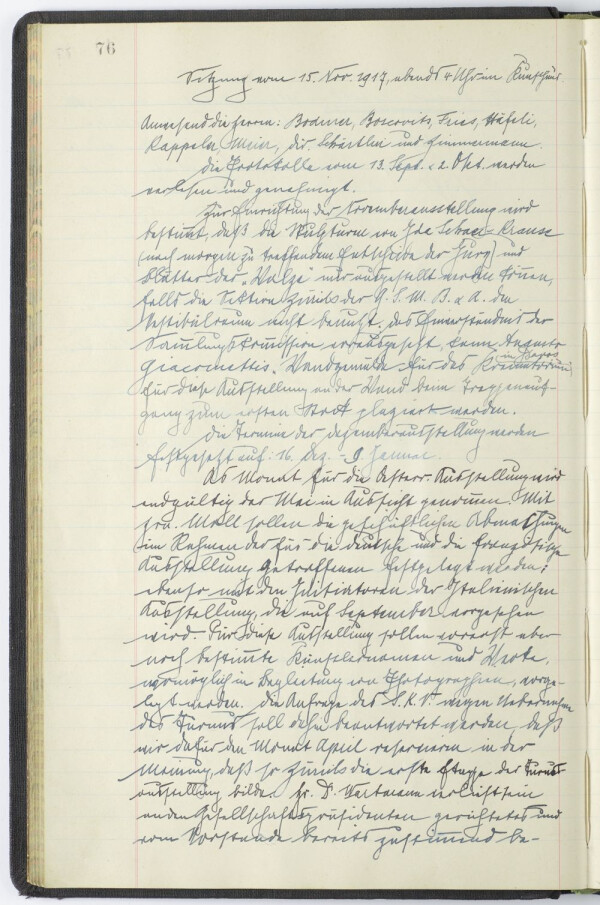 76
Sitzung vom 15. Nov. 1917, abends 4 Uhr im Kunsthaus.
Anwesend die Herren: Bodmer, Boscovits, Fries, Häfeli,
Kappeler, Meier, Dir. Schärtlin und Zimmermann.
Die Protokolle vom 13. Sept. & 2. Okt. werden
verlesen und genehmigt.
Zur Einrichtung der Novemberausstellung wird
bestimmt, daß die Skulpturen von Ida Schaer-Krause
(nach morgen zu treffendem Entscheide der Jury) und
Blätter der „Walze" nur ausgestellt werden können,
falls die Sektion Zürich der G. S. M. B. & A. den
Vestibülraum nicht benutzt. Das Einverständnis der
Sammlungskommission vorausgesetzt, kann Augusto
Giacomettis Wandgemälde für das Krematorium
für diese Ausstellung an der Wand beim Treppenauf-
gang zum ersten Stock plaziert werden.
Die Termine der Dezemberausstellung werden
festgesetzt auf: 16. Dez. - 9. Januar.
Als Monat für die Österr. Ausstellung wird
endgültig der Mai in Aussicht genommen. Mit
Hrn. Moll sollen die geschäftlichen Abmachungen
im Rahmen der für die deutsche und die französische
Ausstellung getroffenen festgelegt werden;
ebenso mit den Initiatoren der Italienischen
Ausstellung, die auf September vorgesehen
wird. Für diese Ausstellung sollen vorerst aber
noch bestimmte Künstlernamen und Werke,
womöglich in Begleitung von Photographien, vorge-
legt werden. Die Anfrage des S. K. V. wegen Uebernahme
des Turnus soll dahin beantwortet werden, daß
wir dafür den Monat April reservieren in der
Meinung, daß so Zürich die erste Etappe der Turnus-
ausstellung bilde. Hr. Dr. Wartmann verliest sein
an den Gesellschaftspräsidenten gerichtetes und
vom Vorstande bereits zustimmend be-